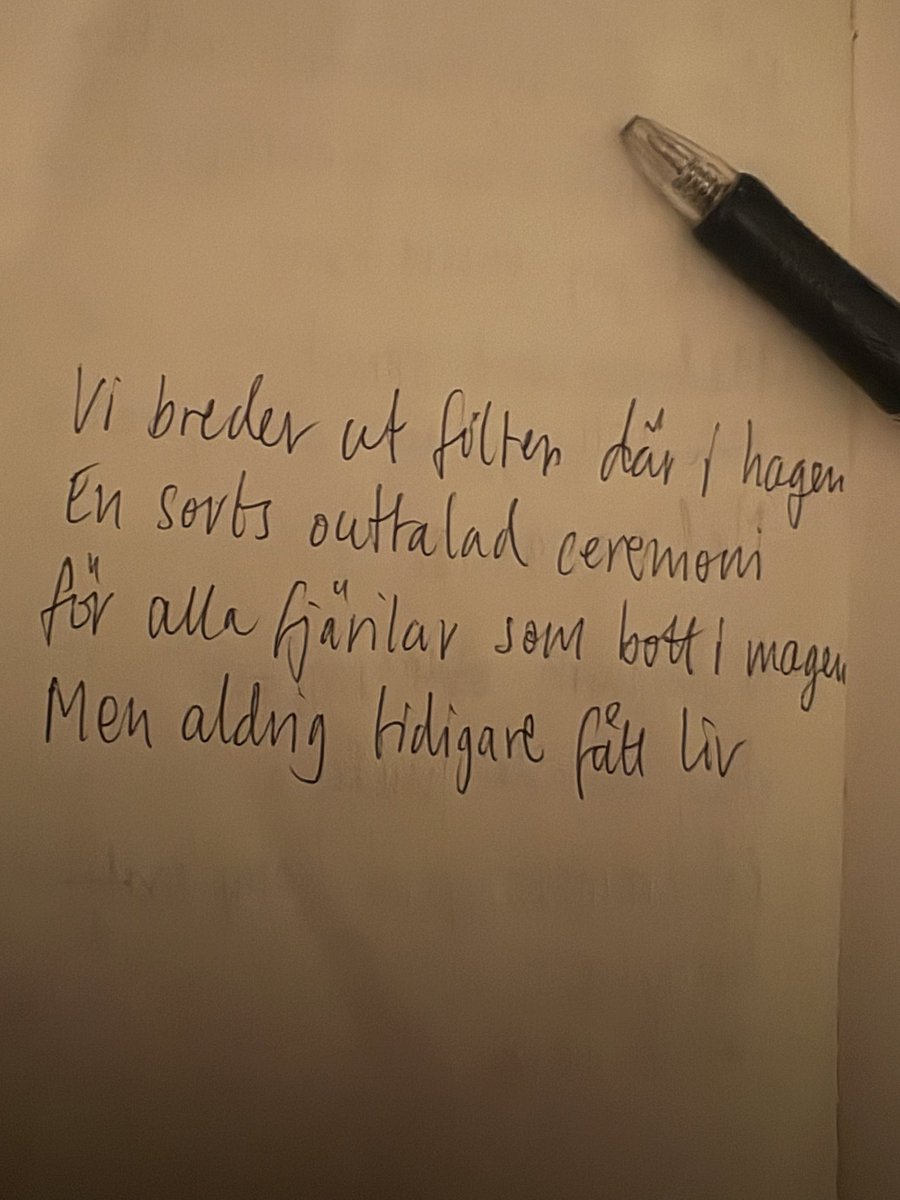 Vi breder ut filten där i hagen
En sorts outtalad ceremoni
för alla fjärilar som bott i magen
Men aldrig tidigare fått liv